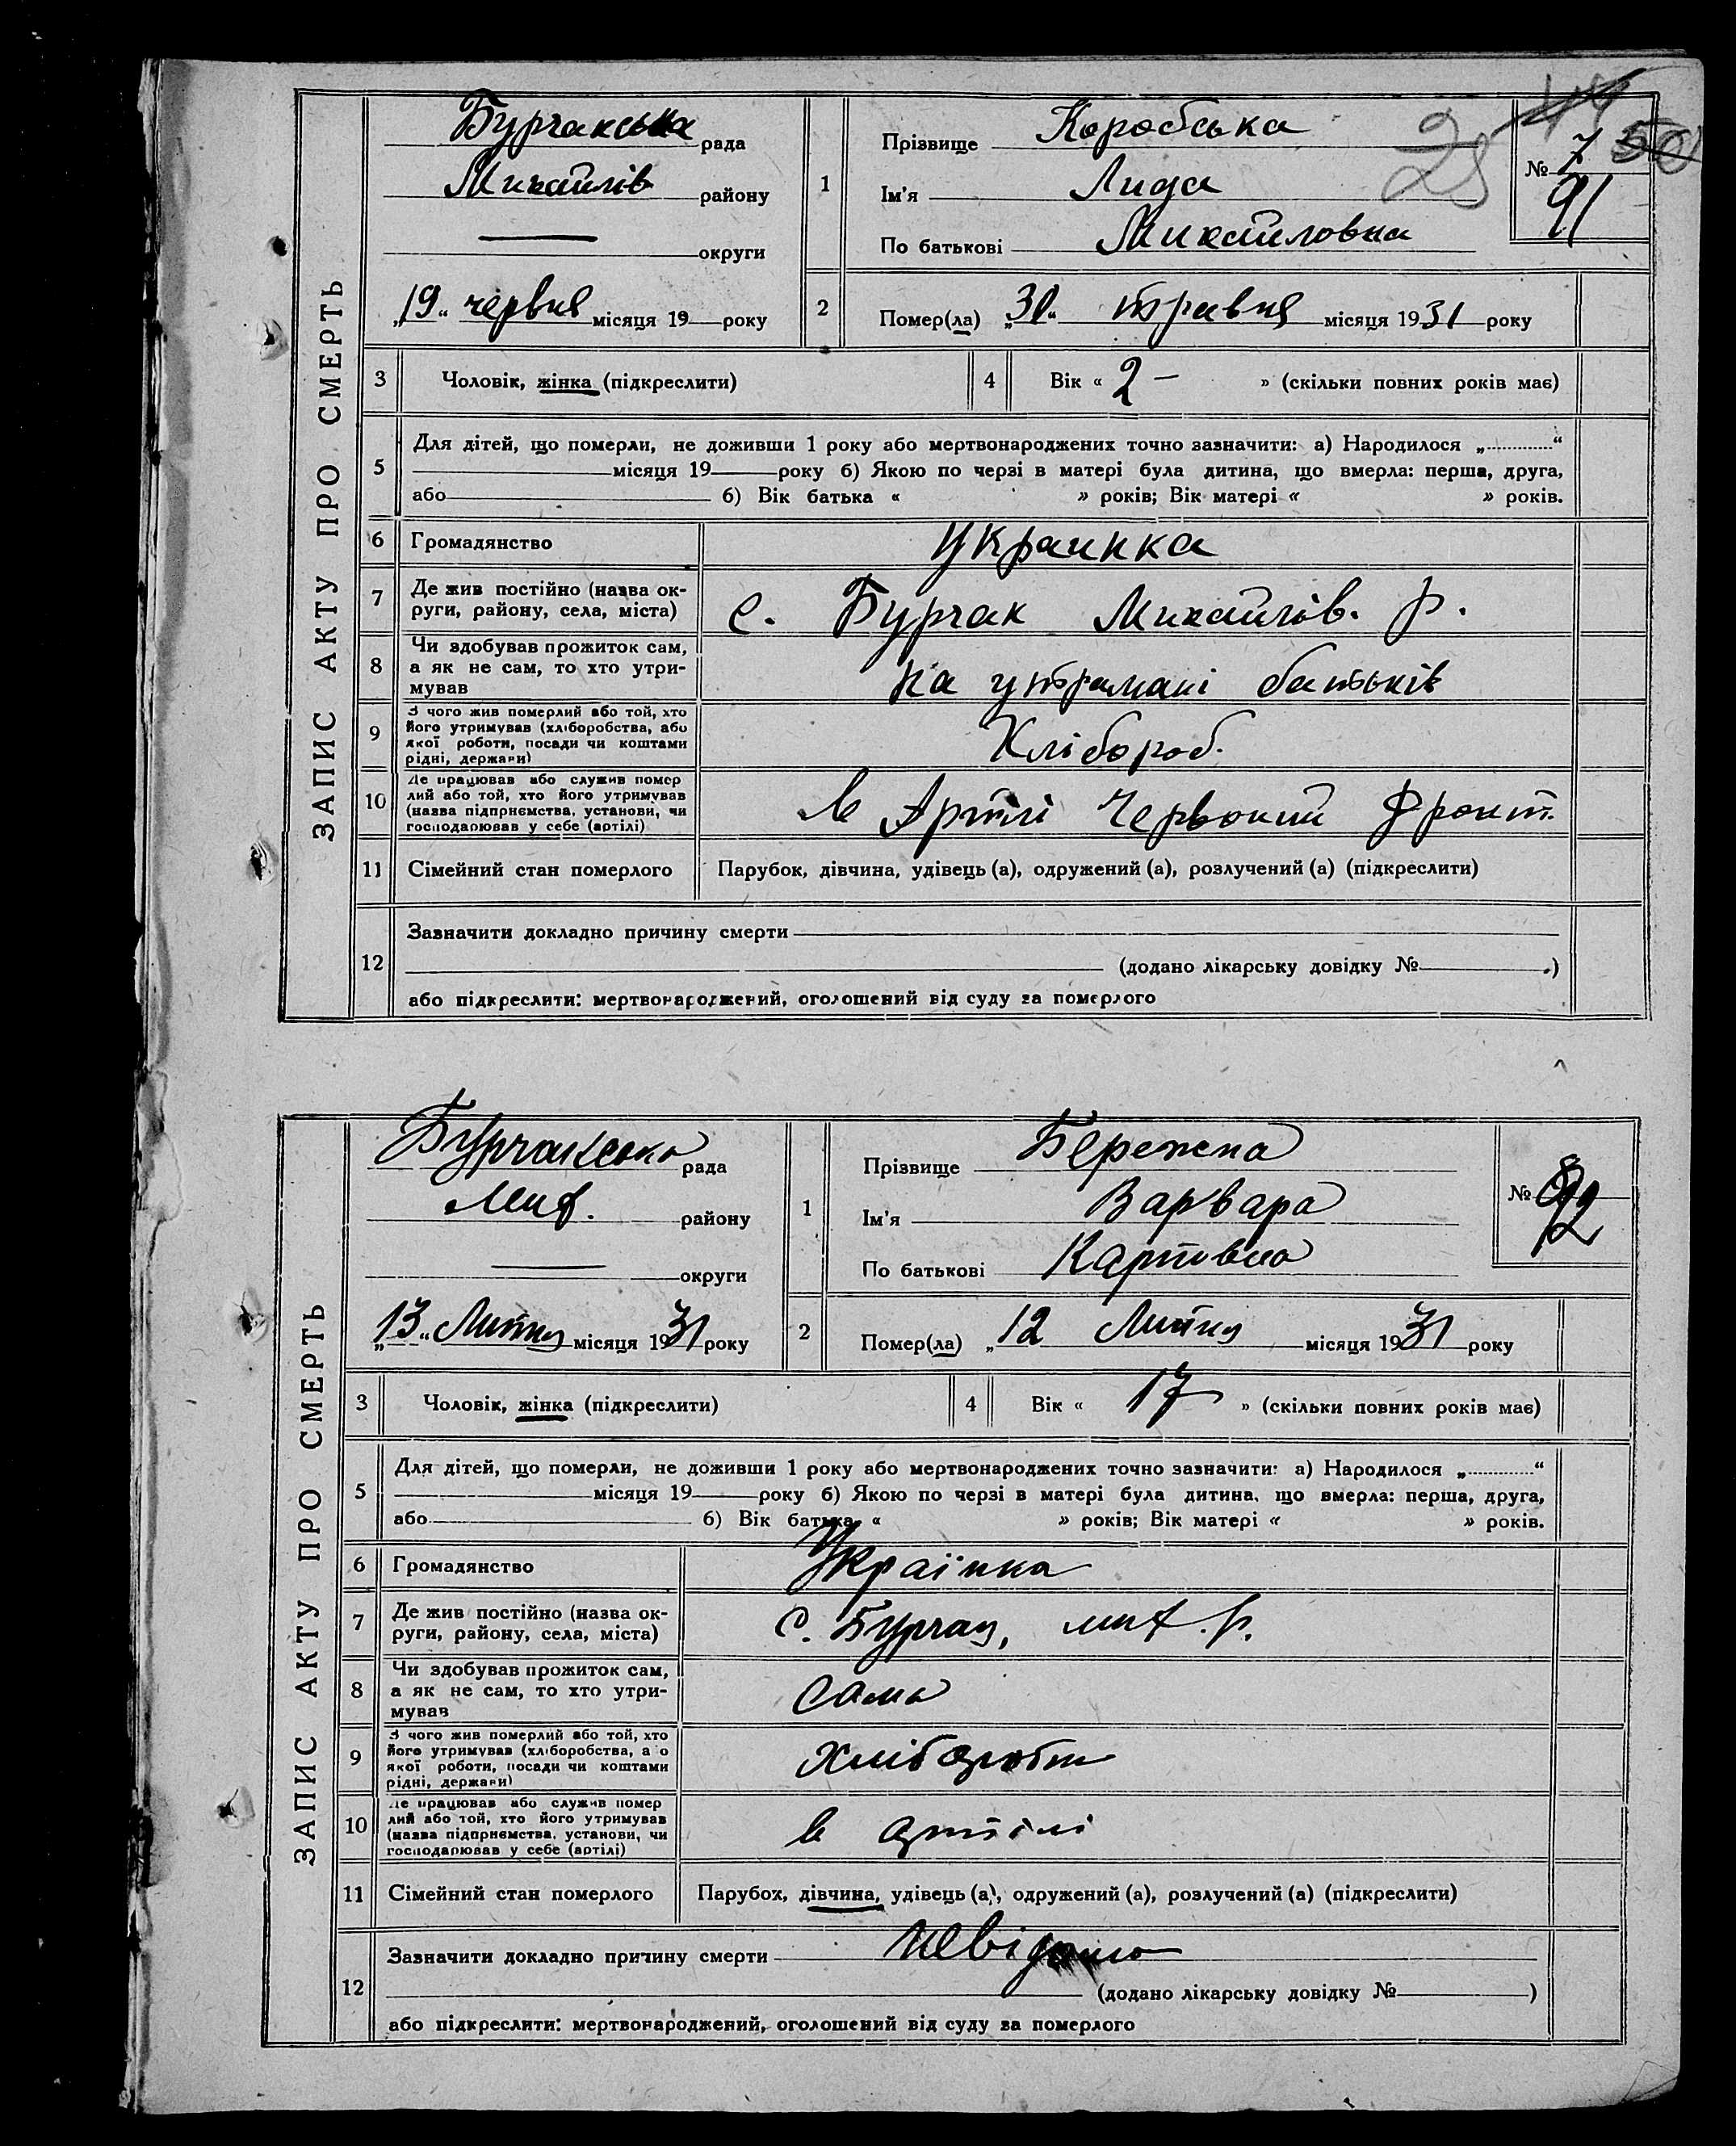 ЗАПИС АКТУ ПРО СМЕРТЬ
25
50
Бурчакська рада
Михайлів району
округи
„19“ червня місяця 19 року
1
Прізвище Коробська
Ім'я Лида
По батькові Михайловна
№ 7
91
2
Помер(ла) „30“ травня місяця 1931 року
3
Чоловік, жінка (підкреслити)
4
Вік « 2 — » (скільки повних років має)
5
Для дітей, що померли, не доживши 1 року або мертвонароджених точно зазначити: а) Народилося „ “
місяця 19 року б) Якою по черзі в матері була дитина, що вмерла: перша, друга,
або б) Вік батька « » років; Вік матері « » років.
6
Громадянство
украинка
7
Де жив постійно (назва ок-
руги, району, села, міста)
с. Бурчак Михайлів. р.
8
Чи здобував прожиток сам,
а як не сам, то хто утри-
мував
на утримані батьків
9
З чого жив померлий або той, хто
його утримував (хліборобства, або
якої роботи, посади чи коштами
рідні, держави)
Хлібороб.
10
Де працював або служив помер
лий або той, хто його утримував
(назва підприємства, установи, чи
господарював у себе (артілі)
в Артілі Червоний Фронт.
11
Сімейний стан померлого
Парубок, дівчина, удівець (а), одружений (а), розлучений (а) (підкреслити)
12
Зазначити докладно причину смерти
(додано лікарську довідку № .)
або підкреслити: мертвонароджений, оголошений від суду за померлого
ЗАПИС АКТУ ПРО СМЕРТЬ
Бурчакська рада
Мих. району
округи
„13“ Липня місяця 1931 року
1
Прізвище Бережна
Ім'я Варвара
По батькові Карповна
№
92
2
Помер(ла) „12 Липня місяця 1931 року
3
Чоловік, жінка (підкреслити)
4
Вік « 17 » (скільки повних років має)
5
Для дітей, що померли, не доживши 1 року або мертвонароджених точно зазначити: а) Народилося „ “
місяця 19 року б) Якою по черзі в матері була дитина, що вмерла: перша, друга,
або б) Вік батька « » років; Вік матері « » років.
6
Громадянство
Українка
7
Де жив постійно (назва ок-
руги, району, села, міста)
с. Бурчак, мих. р.
8
Чи здобував прожиток сам,
а як не сам, то хто утри-
мував
сама
9
З чого жив померлий або той, хто
його утримував (хліборобства, або
якої роботи, посади чи коштами
рідні, держави)
10
Де працював або служив помер
лий або той, хто його утримував
(назва підприємства, установи, чи
господарював у себе (артілі)
в артілі
11
Сімейний стан померлого
Парубок, дівчина, удівець (а), одружений (а), розлучений (а) (підкреслити)
12
Зазначити докладно причину смерти невідомо
(додано лікарську довідку № )
або підкреслити: мертвонароджений, оголошений від суду за померлого